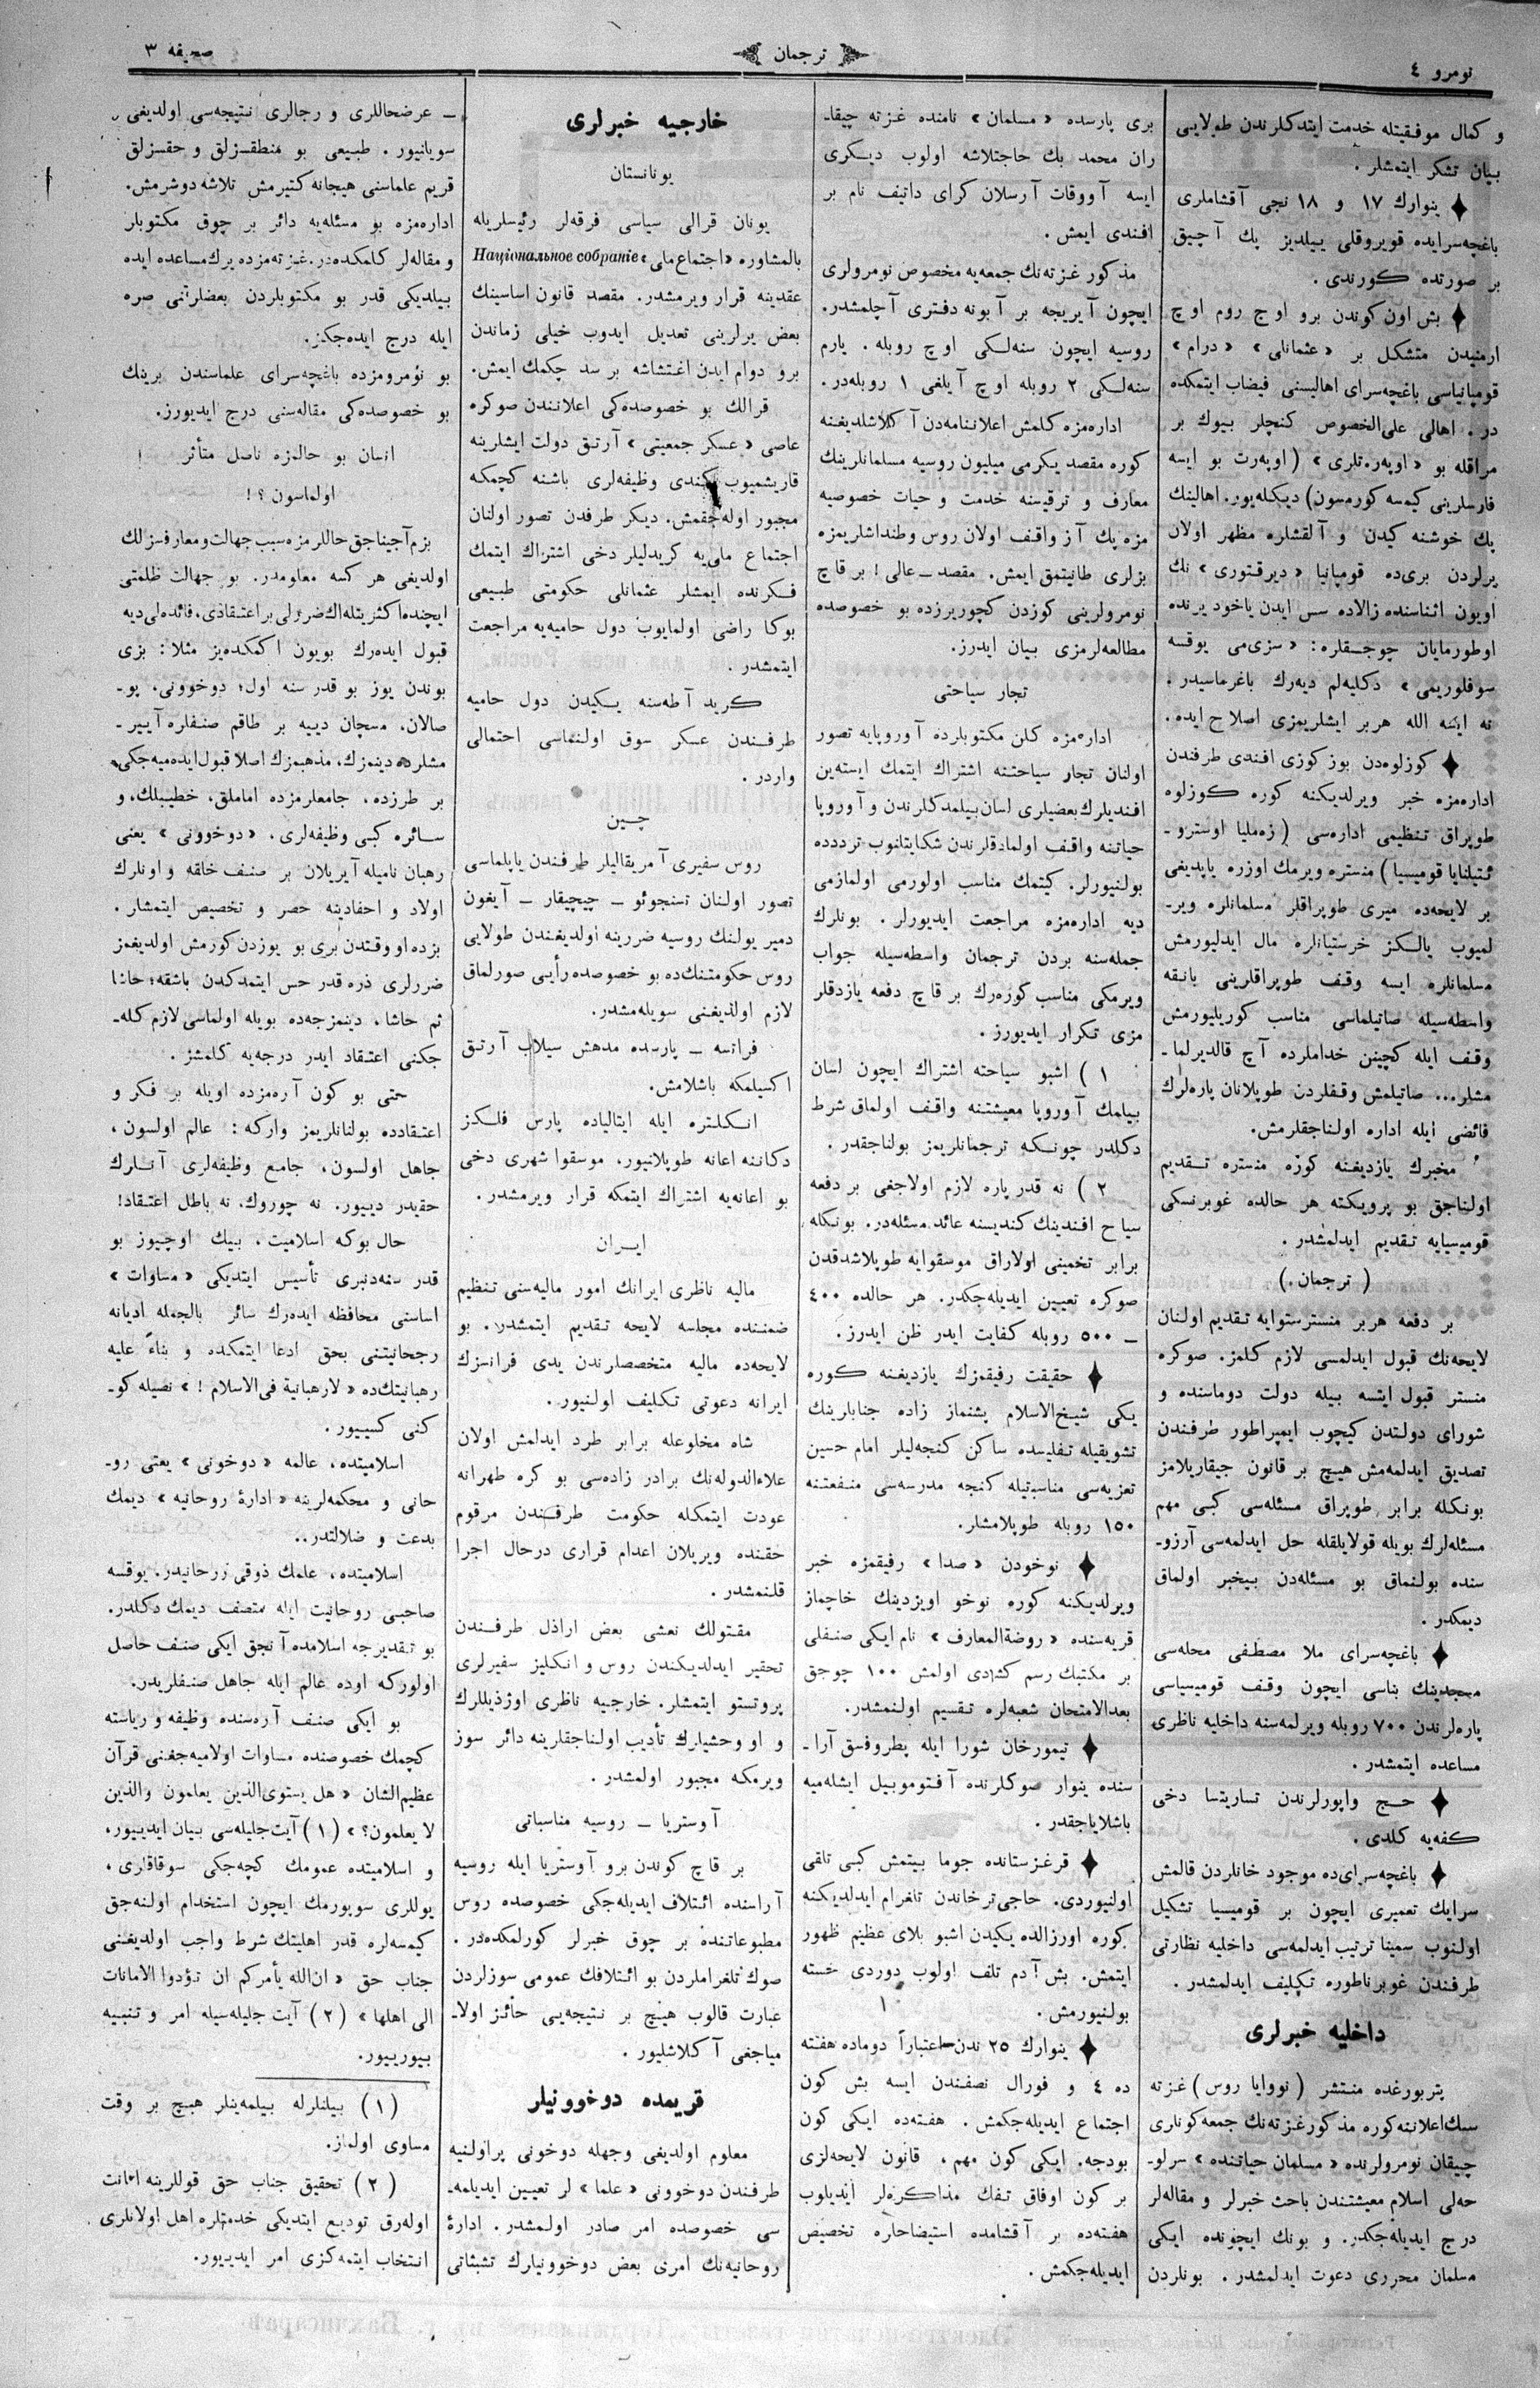 نومرو ٤
ترجمان
صحیفه ٣
و كمال موفقیتله خدمت ایتدكلرندن طولایی
بیان تشكر ایتمشلر.
ینوارك ١٧ و ١٨ نجی آقشاملری
باغچه‌سرایده قویروقلی ییلدیز پك آچیق
بر صورتده كورندی.
بش اون كوندن برو اوچ روم اوچ
ارمنیدن متشكل بر «عثمانلی» «درام»
قومپانیاسی باغچه‌سرای اهالیسنی فیضاب ایتمكده
در. اهالی علی‌الخصوص كنچلر بیوك بر
مراقله بو «اوپه‌ره‌تلری» (اوپه‌رت بو ایسه
فارسلرینی كیمسه كورمسون) دیكله‌یور. اهالینك
پك خوشنه كیدن و آلقشلره مظهر اولان
یرلردن بری‌ده قومپانیا «دیره‌قتوری» نك
اویون اثناسنده زالاده سس ایدن یاخود یرنده
اوطورمایان چوجقلره: «سزی‌می یوقسه
سوفلوریمی» دكلیه‌لم دیه‌رك باغرماسیدر.
نه ایسه الله هربر ایشلریمزی اصلاح ایده.
كوزلوه‌دن بوز كوزی افندی طرفندن
اداره‌مزه خبر ویرلدیكنه كوره كوزلوه
طوپراق تنظیمی اداره‌سی (زه‌ملیا اوسترو-
ئتیلنایا قومیسیا) منستره ویرمك اوزره یاپدیغی
بر لایحه‌ده میری طوپراقلر مسلمانلره ویر-
لمیوب یالكز خرستیانلره مال ایدلیورمش
مسلمانلره ایسه وقف طوپراقلرینی بانقه
واسطه‌سیله صاتیلماسی مناسب كوریلیورمش
وقف ایله كچینن خداملرده آچ قالدیرلما-
مشلر... صاتیلمش وقفلردن طوپلانان پاره‌لرك
فائضی ایله اداره اولناجقلرمش.
مخبرك یازدیغنه كوره منستره تقدیم
اولناجق بو پرویكته هر حالده غوبرنسكی
قومیسیایه تقدیم ایدلمشدر.
(ترجمان.)
بر دفعه هربر منسترستوایه تقدیم اولنان
لایحه‌نك قبول ایدلمسی لازم كلمز. صوكره
منستر قبول ایتسه بیله دولت دوماسنده و
شورای دولتدن كیچوب ایمپراطور طرفندن
تصدیق ایدلمه‌مش هیچ بر قانون جیقاریلامز
بونكله برابر طوپراق مسئله‌سی كبی مهم
مسئله‌لرك بویله قولایلقله حل ایدلمه‌سی آرزو-
سنده بولنماق بو مسئله‌دن بیخبر اولماق
دیمكدر.
باغچه‌سرای ملا مصطفی محله‌سی
مسجدینك بناسی ایچون وقف قومیسیاسی
پاره‌لرندن ٧٠٠ روبله ویرلمه‌سنه داخلیه ناظری
مساعده ایتمشدر.
حج واپورلرندن تساریتسا دخی
كفه‌یه كلدی.
باغچه‌سرای‌ده موجود خانلردن قالمش
سرایك تعمیری ایچون بر قومیسیا تشكیل
اولنوب سمیتا ترتیب ایدلمه‌سی داخلیه نظارتی
طرفندن غوبرناطوره تكلیف ایدلمشدر.
داخلیه خبرلری
پتربورغده منتشر (نووایا روس) غزته
سنك اعلاننه كوره مذكور غزته‌نك جمعه كونلری
چیقان نومرولرنده «مسلمان حیاتنده» سرلو-
حه‌لی اسلام معیشتندن باحث خبرلر و مقاله‌لر
درج ایدیله‌جكدر. و بونك ایچونده ایكی
مسلمان محرری دعوت ایدلمشدر. بونلردن
بری پارسده «مسلمان» نامنده غزته چیقا-
ران محمد بك حاجتلاشه اولوب دیكری
ایسه آووقات آرسلان كرای داتیف نام بر
افندی ایمش.
مذكور غزته‌نك جمعه‌یه مخصوص نومرولری
ایچون آیریجه بر آبونه دفتری آچلمشدر.
روسیه ایچون سنه‌لكی اوچ روبله. یارم
سنه‌لكی ٢ روبله اوچ آیلغی ١ روبله‌در.
اداره‌مزه كلمش اعلاننامه‌دن آكلاشلدیغنه
كوره مقصد یكرمی میلیون روسیه مسلمانلرینك
معارف و ترقیسنه خدمت و حیات خصوصیه
مزه پك آز واقف اولان روس وطنداشلریمزه
بزلری طانیتمق ایمش. مقصد – عالی! بر قاچ
نومرولرینی كوزدن كچوریرزده بو خصوصده
مطالعه‌لرمزی بیان ایدرز.
تجار سیاحتی
اداره‌مزه كلن مكتوبلرده آوروپایه تصور
اولنان تجار سیاحتنه اشتراك ایتمك ایسته‌ین
افندیلرك بعضیلری لسان بیلمدكلرندن و آوروپا
حیاتنه واقف اولمادقلرندن شكایتلنوب ترددده
بولنیورلر. كیتمك مناسب اولورمی اولمازمی
دیه اداره‌مزه مراجعت ایدیورلر. بونلرك
جمله‌سنه بردن ترجمان واسطه‌سیله جواب
ویرمكی مناسب كوره‌رك بر قاچ دفعه یازدقلر
مزی تكرار ایدیورز.
١) اشبو سیاحته اشتراك ایچون لسان
بیلمك آوروپا معیشتنه واقف اولماق شرط
دكلدر چونكه ترجمانلریمز بولناجقدر.
٢) نه قدر پاره لازم اولاجغی بر دفعه
سیاح افندینك كندیسنه عائد مسئله‌در. بونكله
برابر تخمینی اولاراق موسقوایه طوپلاشدقدن
صوكره تعیین ایدیله‌جكدر. هر حالده ٤٠٠
– ٥٠٠ روبله كفایت ایدر ظن ایدرز.
حقیقت رفیقمزك یازدیغنه كوره
یكی شیخ‌الاسلام پشنماز زاده جنابلرینك
تشویقیله تفلیسده ساكن كنجه‌لیلر امام حسین
تعزیه‌سی مناسبتیله كنجه مدرسه‌سی منفعتنه
١٥٠ روبله طوپلامشلر.
نوخودن «صدا» رفیقمزه خبر
ویرلدیكنه كوره نوخو اویزدینك خاچماز
قریه‌سنده «روضةالمعارف» نام ایكی صنفلی
بر مكتبك رسم كشادی اولمش ١٠٠ چوجق
بعدالامتحان شعبه‌لره تقسیم اولنمشدر.
تیمورخان شورا ایله پطروفسق آرا-
سنده ینوار صوكلرنده آفتوموبیل ایشله‌میه
باشلایاجقدر.
قرغزستانده جوما بیتمش كبی تلقی
اولنیوردی. حاجی‌ترخاندن تلغرام ایدلدیكنه
كوره اورزالده یكیدن اشبو بلای عظیم ظهور
ایتمش. بش آدم تلف اولوب دوردی خسته
بولنیورمش.
ینوارك ٢٥ ندن اعتباراً دوماده هفته
ده ٤ و فورال نصفندن ایسه بش كون
اجتماع ایدیله‌جكمش. هفته‌ده ایكی كون
بودجه. ایكی كون مهم، قانون لایحه‌لری
بر كون اوفاق تفك مذاكره‌لر ایدیلوب
هفته‌ده بر آقشامده استیضاحلره تخصیص
ایدیله‌جكمش.
خارجیه خبرلری
یونانستان
یونان قرالی سیاسی فرقه‌لر رئیسلریله
بالمشاوره «اجتماع ملی» Національное собраніе
عقدینه قرار ویرمشدر. مقصد قانون اساسینك
بعض یرلرینی تعدیل ایدوب خیلی زماندن
برو دوام ایدن اغتشاشه بر سد چكمك ایمش.
قرالك بو خصوصده‌كی اعلانندن صوكره
عاصی «عسكر جمعیتی» آرتق دولت ایشلرینه
قاریشمیوب كندی وظیفه‌لری باشنه كچمكه
مجبور اوله‌جقمش. دیكر طرفدن تصور اولنان
اجتماع ملی‌یه كریدلیلر دخی اشتراك ایتمك
فكرنده ایمشلر عثمانلی حكومتی طبیعی
بوكا راضی اولمایوب دول حامیه‌یه مراجعت
ایتمشدر.
كرید آطه‌سنه یكیدن دول حامیه
طرفندن عسكر سوق اولنماسی احتمالی
واردر.
چین
روس سفیری آمریقالیلر طرفندن یاپلماسی
تصور اولنان تسنجوئو – چیچیقار – آیغون
دمیر یولنك روسیه ضررینه اولدیغندن طولایی
روس حكومتنك‌ده بو خصوصده رأیی صورلماق
لازم اولدیغنی سویله‌مشدر.
فرانسه – پارسده مدهش سیلاب آرتق
اكسیلمكه باشلامش.
انكلتره ایله ایتالیاده پارس فلكز
دكاننه اعانه طوپلانیور، موسقوا شهری دخی
بو اعانه‌یه اشتراك ایتمكه قرار ویرمشدر.
ایران
مالیه ناظری ایرانك امور مالیه‌سنی تنظیم
ضمننده مجلسه لایحه تقدیم ایتمشدر. بو
لایحه‌ده مالیه متخصصلرندن یدی فرانسزك
ایرانه دعوتی تكلیف اولنیور.
شاه مخلوعله برابر طرد ایدلمش اولان
علاءالدوله‌نك برادر زاده‌سی بو كره طهرانه
عودت ایتمكله حكومت طرفندن مرقوم
حقنده ویریلان اعدام قراری درحال اجرا
قلنمشدر.
مقتولك نعشی بعض اراذل طرفندن
تحقیر ایدلدیكندن روس و انكلیز سفیرلری
پروتستو ایتمشلر. خارجیه ناظری اوژذیللرك
و او وحشیلرك تأدیب اولناجقلرینه دائر سوز
ویرمكه مجبور اولمشدر.
آوستریا – روسیه مناسباتی
بر قاچ كوندن برو آوستریا ایله روسیه
آراسنده ائتلاف ایدیله‌جكی خصوصده روس
مطبوعاتنده بر چوق خبرلر كورلمكده‌در.
صوك تلغراملردن بو ائتلافك عمومی سوزلردن
عبارت قالوب هیچ بر نتیجه‌یی حائز اولا-
میاجغی آكلاشلیور.
قریمده دوخوونیلر
معلوم اولدیغی وجهله دوخونی پراولنیه
طرفندن دوخوونی «علما» لر تعیین ایدیلمه-
سی خصوصده امر صادر اولمشدر. ادارۀ
روحانیه‌نك امری بعض دوخوونیلرك تشبثاتی
– عرضحاللری و رجالری نتیجه‌سی اولدیغی
سویلنیور. طبیعی بو منطقسزلق و حقسزلق
قریم علماسنی هیجانه كتیرمش تلاشه دوشرمش.
اداره‌مزه بو مسئله‌یه دائر بر چوق مكتوبلر
و مقاله‌لر كلمكده‌در. غزته‌مزده یرك مساعده ایده
بیلدیكی قدر بو مكتوبلردن بعضلرانی صره
ایله درج ایده‌جكز.
بو نومرومزده باغچه‌سرای علماسندن برینك
بو خصوصده‌كی مقاله‌سنی درج ایدیورز.
انسان بو حالمزه ناصل متأثر
اولماسون؟!
بزم آجیناجق حاللرمزه سبب جهالت و معارفسزلك
اولدیغی هر كسه معلومدر. بو جهالت ظلمتی
ایچنده اكثریتله اك ضررلی بر اعتقادی، فائده‌لی دیه
قبول ایده‌رك بویون اكمكده‌یز مثلا: بزی
بوندن یوز بو قدر سنه اول؛ دوخوونی، پو-
صالان، مسچان دییه بر طاقم صنفلره آییر-
مشلرده دینمزك، مذهبمزك اصلا قبول ایده‌میه‌جكی
بر طرزده، جامعلرمزده اماملق، خطیبلك، و
سائره كبی وظیفه‌لری، «دوخوونی» یعنی
رهبان نامیله آیریلان بر صنف خلقه و اونلرك
اولاد و احفادینه حصر و تخصیص ایتمشلر.
بزده او وقتدن بری بو یوزدن كورمش اولدیغمز
ضررلری ذره قدر حس ایتمدكدن باشقه؛ حاشا
ثم حاشا، دینمزجه‌ده بویله اولماسی لازم كله-
جكنی اعتقاد ایدر درجه‌یه كلمشز.
حتی بو كون آره‌مزده اویله بر فكر و
اعتقادده بولنانلریمز واركه: عالم اولسون،
جاهل اولسون، جامع وظیفه‌لری آنلرك
حقیدر دییور. نه چوروك، نه باطل اعتقاد!
حال بوكه اسلامیت، بیك اوچیوز بو
قدر سنه‌دنبری تأسیس ایتدیكی «مساوات»
اساسنی محافظه ایده‌رك سائر بالجمله ادیانه
رجحانیتنی بحق ادعا ایتمكده و بناءً علیه
رهبانیتك‌ده «لارهبانیة فی‌الاسلام!» نصیله كو-
كنی كسییور.
اسلامیتده، عالمه «دوخونی» یعنی رو-
حانی و محكمه‌لرینه «ادارۀ روحانیه» دیمك
بدعت و ضلالتدر..
اسلامیتده، علمك ذوقی روحانیدر. یوقسه
صاحبی روحانیت ایله متصف دیمك دكلدر.
بو تقدیرجه اسلامده آنجق ایكی صنف حاصل
اولوركه اوده عالم ایله جاهل صنفلریدر.
بو ایكی صنف آره‌سنده وظیفه و ریاسته
كچمك خصوصنده مساوات اولامیه‌جغنی قرآن
عظیم‌الشان «هل یستوی‌الذین یعلمون والذین
لا یعلمون؟» (١) آیت جلیله‌سی بیان ایدییور،
و اسلامیتده عمومك كچه‌جكی سوقاقلری،
یوللری سوپورمك ایچون استخدام اولنه‌جق
كیمسه‌لره قدر اهلیتك شرط واجب اولدیغنی
جناب حق «ان‌الله یأمركم ان تؤدوا الامانات
الی اهلها» (٢) آیت جلیله‌سیله امر و تنبیه
بیورییور.
(١) بیلنلرله بیلمه‌ینلر هیچ بر وقت
مساوی اولماز.
(٢) تحقیق جناب حق قوللرینه امانت
اوله‌رق تودیع ایتدیكی خدمتلره اهل اولانلری
انتخاب ایتمه‌كزی امر ایدییور.